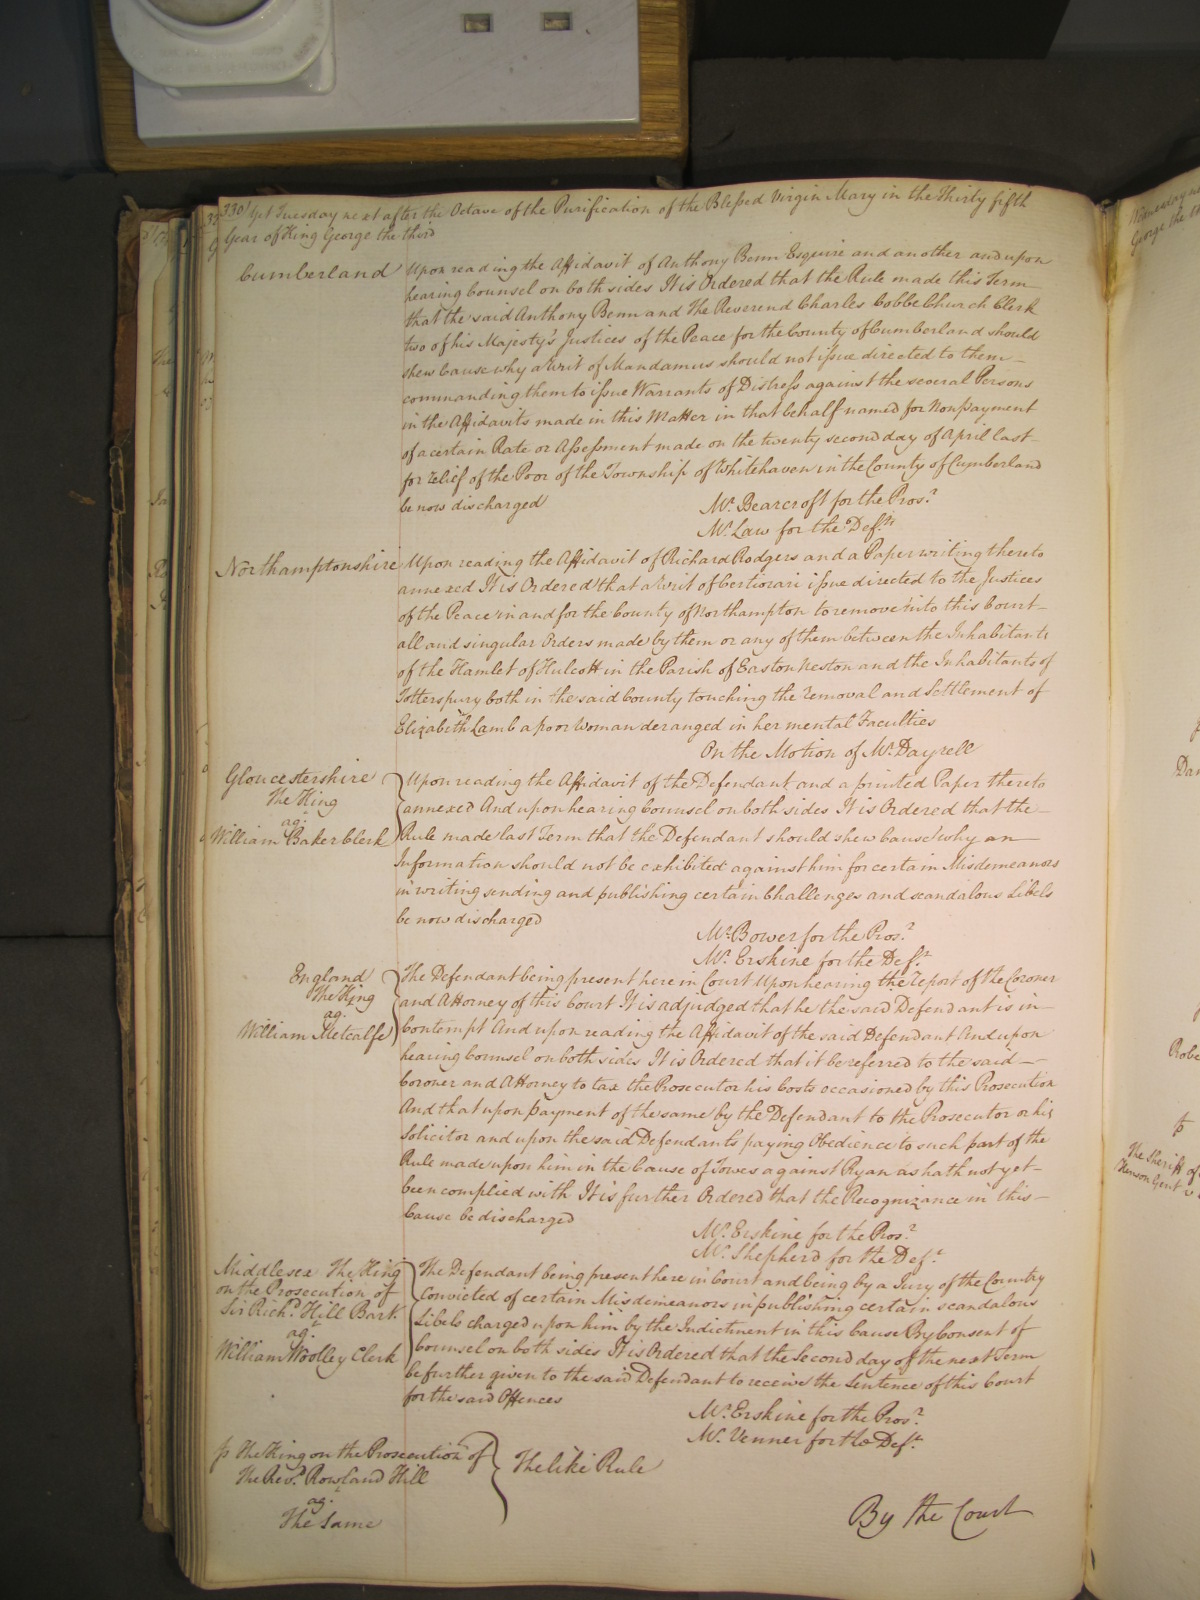 330 Yet Tuesday next after the Octave of the Purification of the Blessed Virgin Mary in the Thirty fifth
Year of King George the third
Cumberland
Upon reading the Affidavit of Anthony Benn Esquire and another and upon
hearing Counsel on both sides It is Ordered that the Rule made this Term
that the said Anthony Benn and The Reverend Charles Cobbe Church Clerk
two of his Majesty's Justices of the Peace for the County of Cumberland should
shew Cause why a Writ of Mandamus should not issue directed to them
commanding them to issue Warrants of Distress against the several Persons
in the Affidavits made in this Matter in that behalf named for Nonpayment
of a certain Rate or Assessment made on the twenty second day of April last
for relief of the Poor of the Township of Whitehaven in the County of Cumberland
be now discharged
Mr. Bearcroft for the Pros.r
Mr. Law for the Def.ts
Northamptonshire
Upon reading the Affidavit of Richard Rodgers and a Paper writing thereto
annexed It is Ordered that a Writ of Certiorari issue directed to the Justices
of the Peace in and for the County of Northampton to remove into this Court
all and singular Orders made by them or any of them between the Inhabitants
of the Hamlet of Hulcott in the Parish of Easton Neston and the Inhabitants of
Potterspury both in the said County touching the removal and Settlement of
Elizabeth Lamb a poor Woman deranged in her mental Faculties
On the Motion of Mr. Dayrell
Gloucestershire
The King
ag.t
William Baker Clerk
Upon reading the Affidavit of the Defendant and a printed Paper thereto
annexed And upon hearing Counsel on both sides It is Ordered that the
Rule made last Term that the Defendant should shew Cause why an
Information should not be exhibited against him for certain Misdemeanors
in writing sending and publishing certain Challenges and scandalous Libels
be now discharged
Mr. Bower for the Pros.r
Mr. Erskine for the Def.t
England
The King
ag.
William Metcalfe
The Defendant being present here in Court Upon hearing the report of the Coroner
and Attorney of this Court It is adjudged that he the said Defendant is in
Contempt And upon reading the Affidavit of the said Defendant And upon
hearing Counsel on both sides It is Ordered that it be referred to the said
Coroner and Attorney to tax the Prosecutor his Costs occasioned by this Prosecution
And that upon payment of the same by the Defendant to the Prosecutor or his
Solicitor and upon the said Defendants paying Obedience to such part of the
Rule made upon him in the Cause of Towes against Ryan as hath not yet
been complied with It is further Ordered that the Recognizance in this
Cause be discharged
Mr. Erskine for the Pros.r
Mr. Shepherd for the Def.t
Middlesex The King
on the Prosecution of
Sir Rich.d Hill Bart.
ag.t
William Woolley Clerk
The Defendant being present here in Court and being by a Jury of the Country
Convicted of certain Misdemeanors in publishing certain scandalous
Libels charged upon him by the Indictment in this Cause By Consent of
Counsel on both sides It is Ordered that the Second day of the next Term
be further given to the said Defendant to receive the Sentence of this Court
for the said Offences
Mr. Erskine for the Pros.r
Mr. Venner for the Def.t
p The King on the Prosecution of
The Rev.d Rowland Hill
ag.t
The Same
The like Rule
By the Court